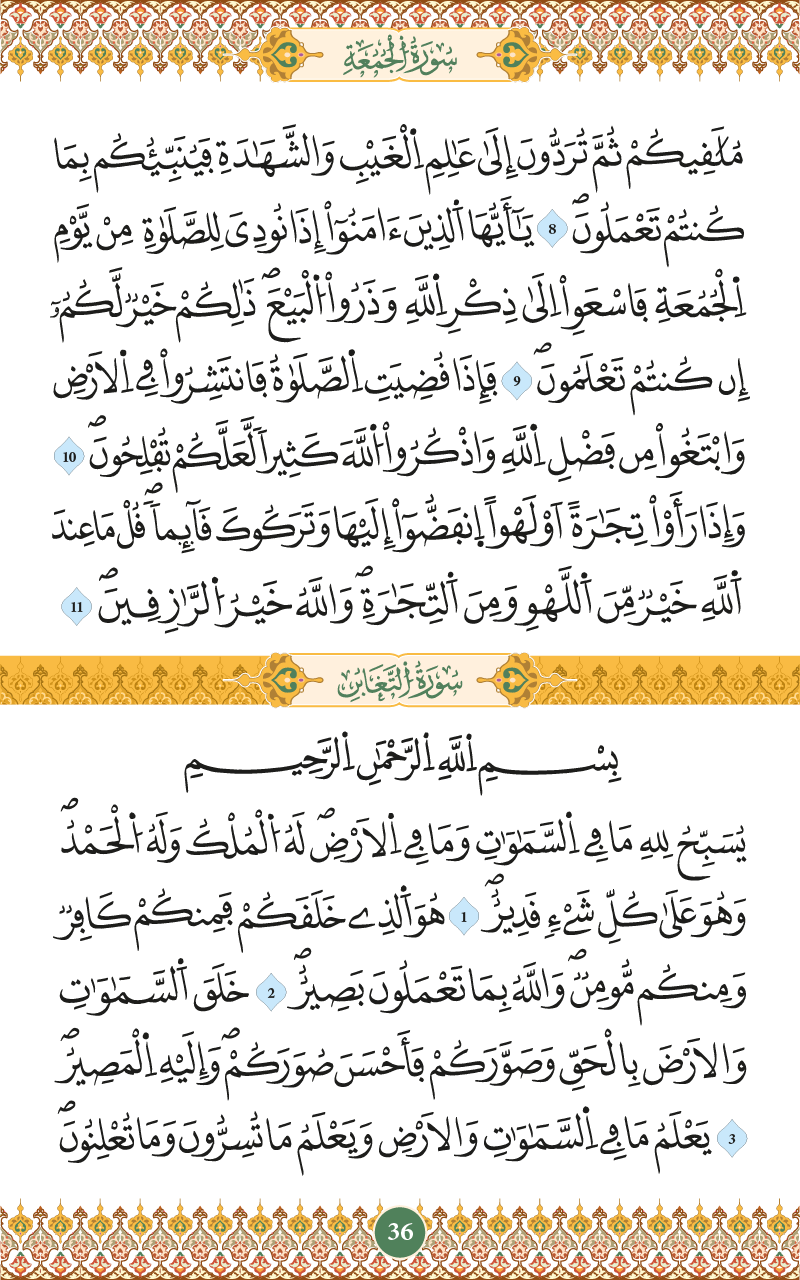 سُورَةُ الْجُمُعَةِ
مُلَٰقِيكُمْ ثُمَّ تُرَدُّونَ إِلَىٰ عَٰلِمِ اِ۬لْغَيْبِ وَالشَّهَٰدَةِ فَيُنَبِّئُكُم بِمَا
كُنتُمْ تَعْمَلُونَۖ 8 يَٰٓأَيُّهَا اَ۬لذِينَ ءَامَنُوٓاْ إِذَا نُودِيَ لِلصَّلَوٰةِ مِنْ يَّوْمِ
اِ۬لْجُمُعَةِ فَاسْعَوِاْ اِلَىٰ ذِكْرِ اِ۬للَّهِ وَذَرُواْ اُ۬لْبَيْعَۖ ذَٰلِكُمْ خَيْرٞ لَّكُمُۥٓ
إِن كُنتُمْ تَعْلَمُونَۖ 9 فَإِذَا قُضِيَتِ اِ۬لصَّلَوٰةُ فَانتَشِرُواْ فِے اِ۬لَارْضِ
وَابْتَغُواْ مِن فَضْلِ اِ۬للَّهِ وَاذْكُرُواْ اُ۬للَّهَ كَثِيراٗ لَّعَلَّكُمْ تُفْلِحُونَۖ 10
وَإِذَا رَأَوْاْ تِجَٰرَةً اَوْ لَهْواً اِ۪نفَضُّوٓاْ إِلَيْهَا وَتَرَكُوكَ قَآئِماٗۖ قُلْ مَا عِندَ
اَ۬للَّهِ خَيْرٞ مِّنَ اَ۬للَّهْوِ وَمِنَ اَ۬لتِّجَٰرَةِۖ وَاللَّهُ خَيْرُ اُ۬لرَّٰزِقِينَۖ 11
سُورَةُ التَّغَابُنِ
بِسْمِ اِ۬للَّهِ اِ۬لرَّحْمَٰنِ اِ۬لرَّحِيمِ
يُسَبِّحُ لِلهِ مَا فِے اِ۬لسَّمَٰوَٰتِ وَمَا فِے اِ۬لَارْضِۖ لَهُ اُ۬لْمُلْكُ وَلَهُ اُ۬لْحَمْدُۖ
وَهُوَ عَلَىٰ كُلِّ شَےْءٖ قَدِيرٌۖ 1 هُوَ اَ۬لذِے خَلَقَكُمْ فَمِنكُمْ كَافِرٞ
وَمِنكُم مُّومِنٞۖ وَاللَّهُ بِمَا تَعْمَلُونَ بَصِيرٌۖ 2 خَلَقَ اَ۬لسَّمَٰوَٰتِ
وَالَارْضَ بِالْحَقِّ وَصَوَّرَكُمْ فَأَحْسَنَ صُوَرَكُمْۖ وَإِلَيْهِ اِ۬لْمَصِيرُۖ
3 يَعْلَمُ مَا فِے اِ۬لسَّمَٰوَٰتِ وَالَارْضِ وَيَعْلَمُ مَا تُسِرُّونَ وَمَا تُعْلِنُونَۖ
36